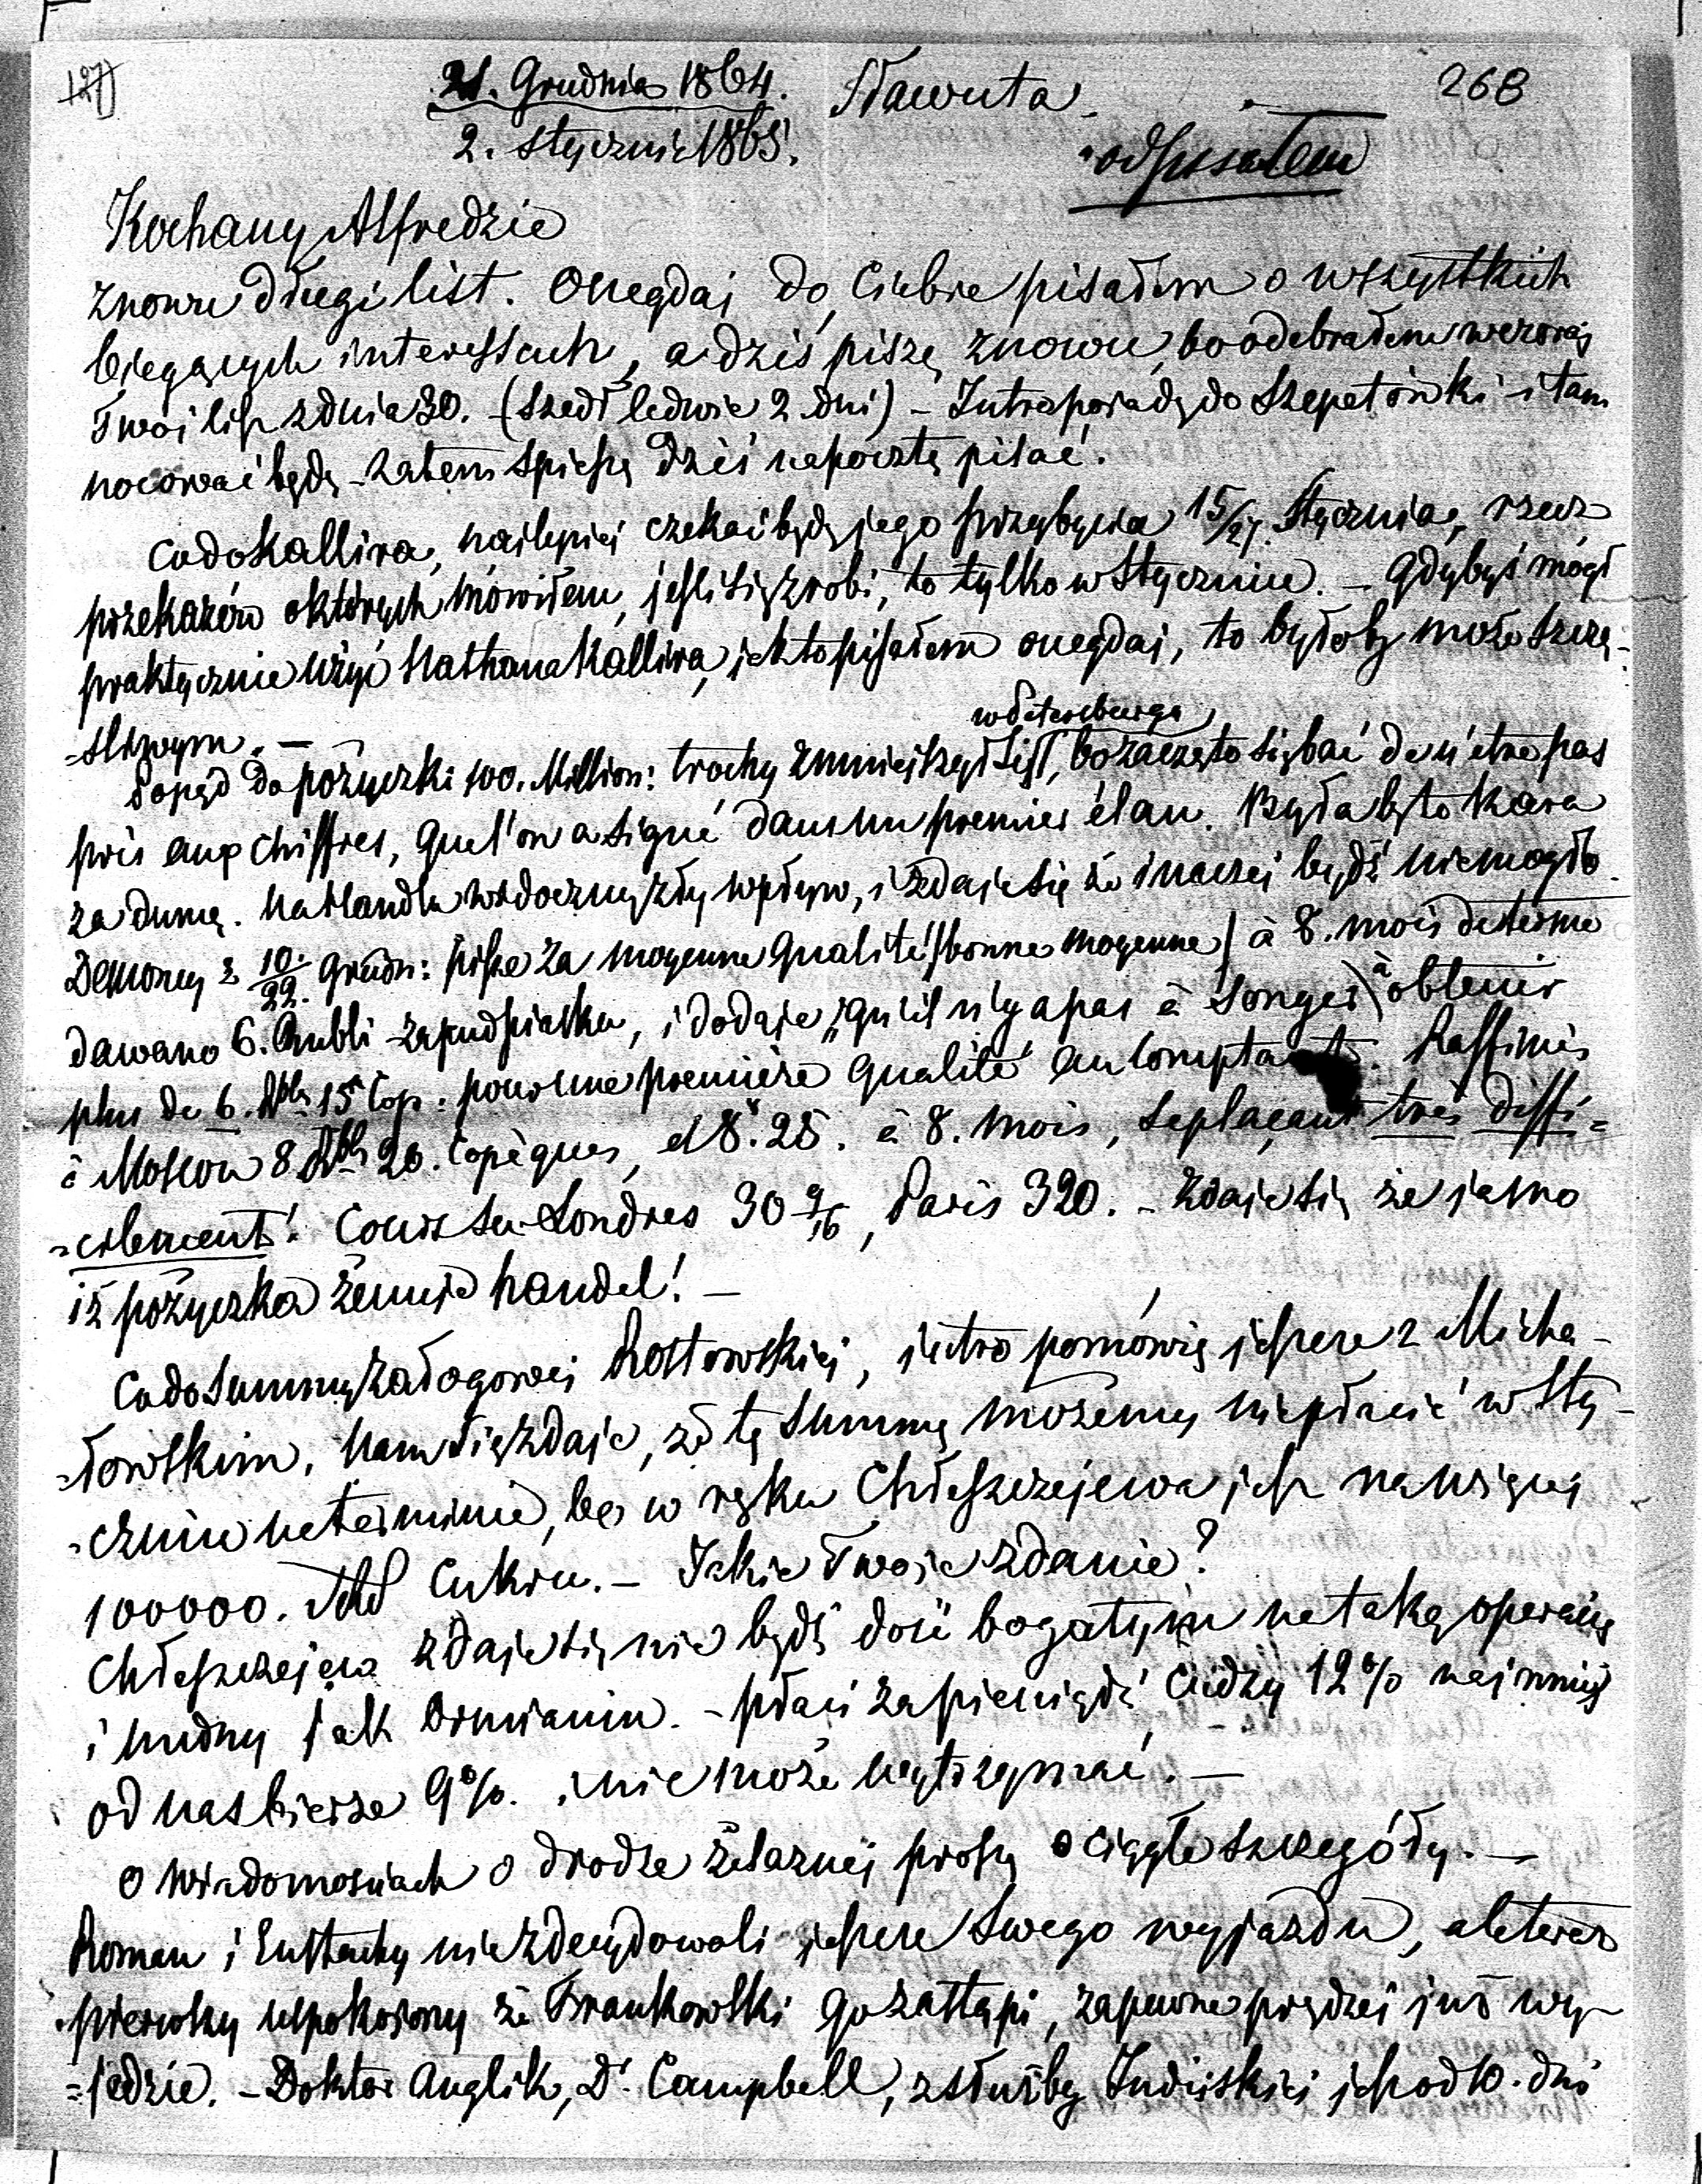 127)
21. Grudnia 1864. Sławuta. 268
2. Stycznia 1865. odpisałem
Kochany Alfredzie
znowu długi list. Onegdaj do Ciebie pisałem o wszystkich
bieżących interessach, a dziś piszę znowu, bo odebrałem wczoraj
Twój list z dnia 30. (szedł ledwie 2 dni) – Jutro pojadę do Szepetówki i tam
nocować będę – zatem spieszę dziś na pocztę pisać.
Co do Kallira, najlepiej czekać będę jego przybycia 15/27. Stycznia, rzecz
przekazów o których mówiłem, jeśli się zrobi, to tylko w Styczniu. – Gdybyś mógł
praktycznie użyć Nathana Kallira, jak to pisałem onegdaj, to byłoby może szczę-
=śliwym. –
Popęd do pożyczki 100. Million: trochę zmniejszył się w Petersburgu, bo zaczęto się bać de n'être pas
pris aux chiffres, que l'on a signé dans un premier élan. Byłaby to kara
za dumę. Na handlu widoczny zły wpływ, i zdaje się że inaczej bydź nie mogło.
Demoncy z 10./22. Grudn: pisze za moyenne qualité (bonne moyenne) à 8. mois de terme
dawano 6. Rubli za pud piasku, i dodaje „qu'il n'y a pas à songer à obtenir
plus de 6. Rbls 15 Cop: pour une première qualité au comptant. Raffinés
à Moscou 8 Rbls 20. Copèques, et 8. 25. à 8. mois, se plaçant très diffi=
=cilement! Cours su Londres 30 9/16, Paris 320. – Zdaje się że jasno
iż pożyczka żenuje handel! –
Co do summy załogowej Rostowskiej, jutro pomówię jeszcze z Micha-
=łowskim. Nam się zdaje, że tę summę możemy nie płacić w Sty-
=czniu na terminie, bo w ręku Chłeszczejewa jest na więcej
100000. Rbl Cukru. – Jakie Twoje zdanie?
Chłeszczejew zdaje się nie bydź dość bogatym na taką operacię
i nudny jak Ormianin. – płaci za pieniądz cudzy 12% najmniej
od nas bierze 9%. i nie może wytrzymać. –
O wiadomościach o drodze żelaznej proszę o ciągłe szczegóły. –
Roman i Eustachy nie zdecydowali jeszcze swego wyjazdu, ale teraz
pierwszy uspokojony że Frankowski go zastąpi, zapewne prędzej już wy-
=jedzie. – Doktor Anglik, Dr. Campbell, z służby Indijskiej jest od 10. dni